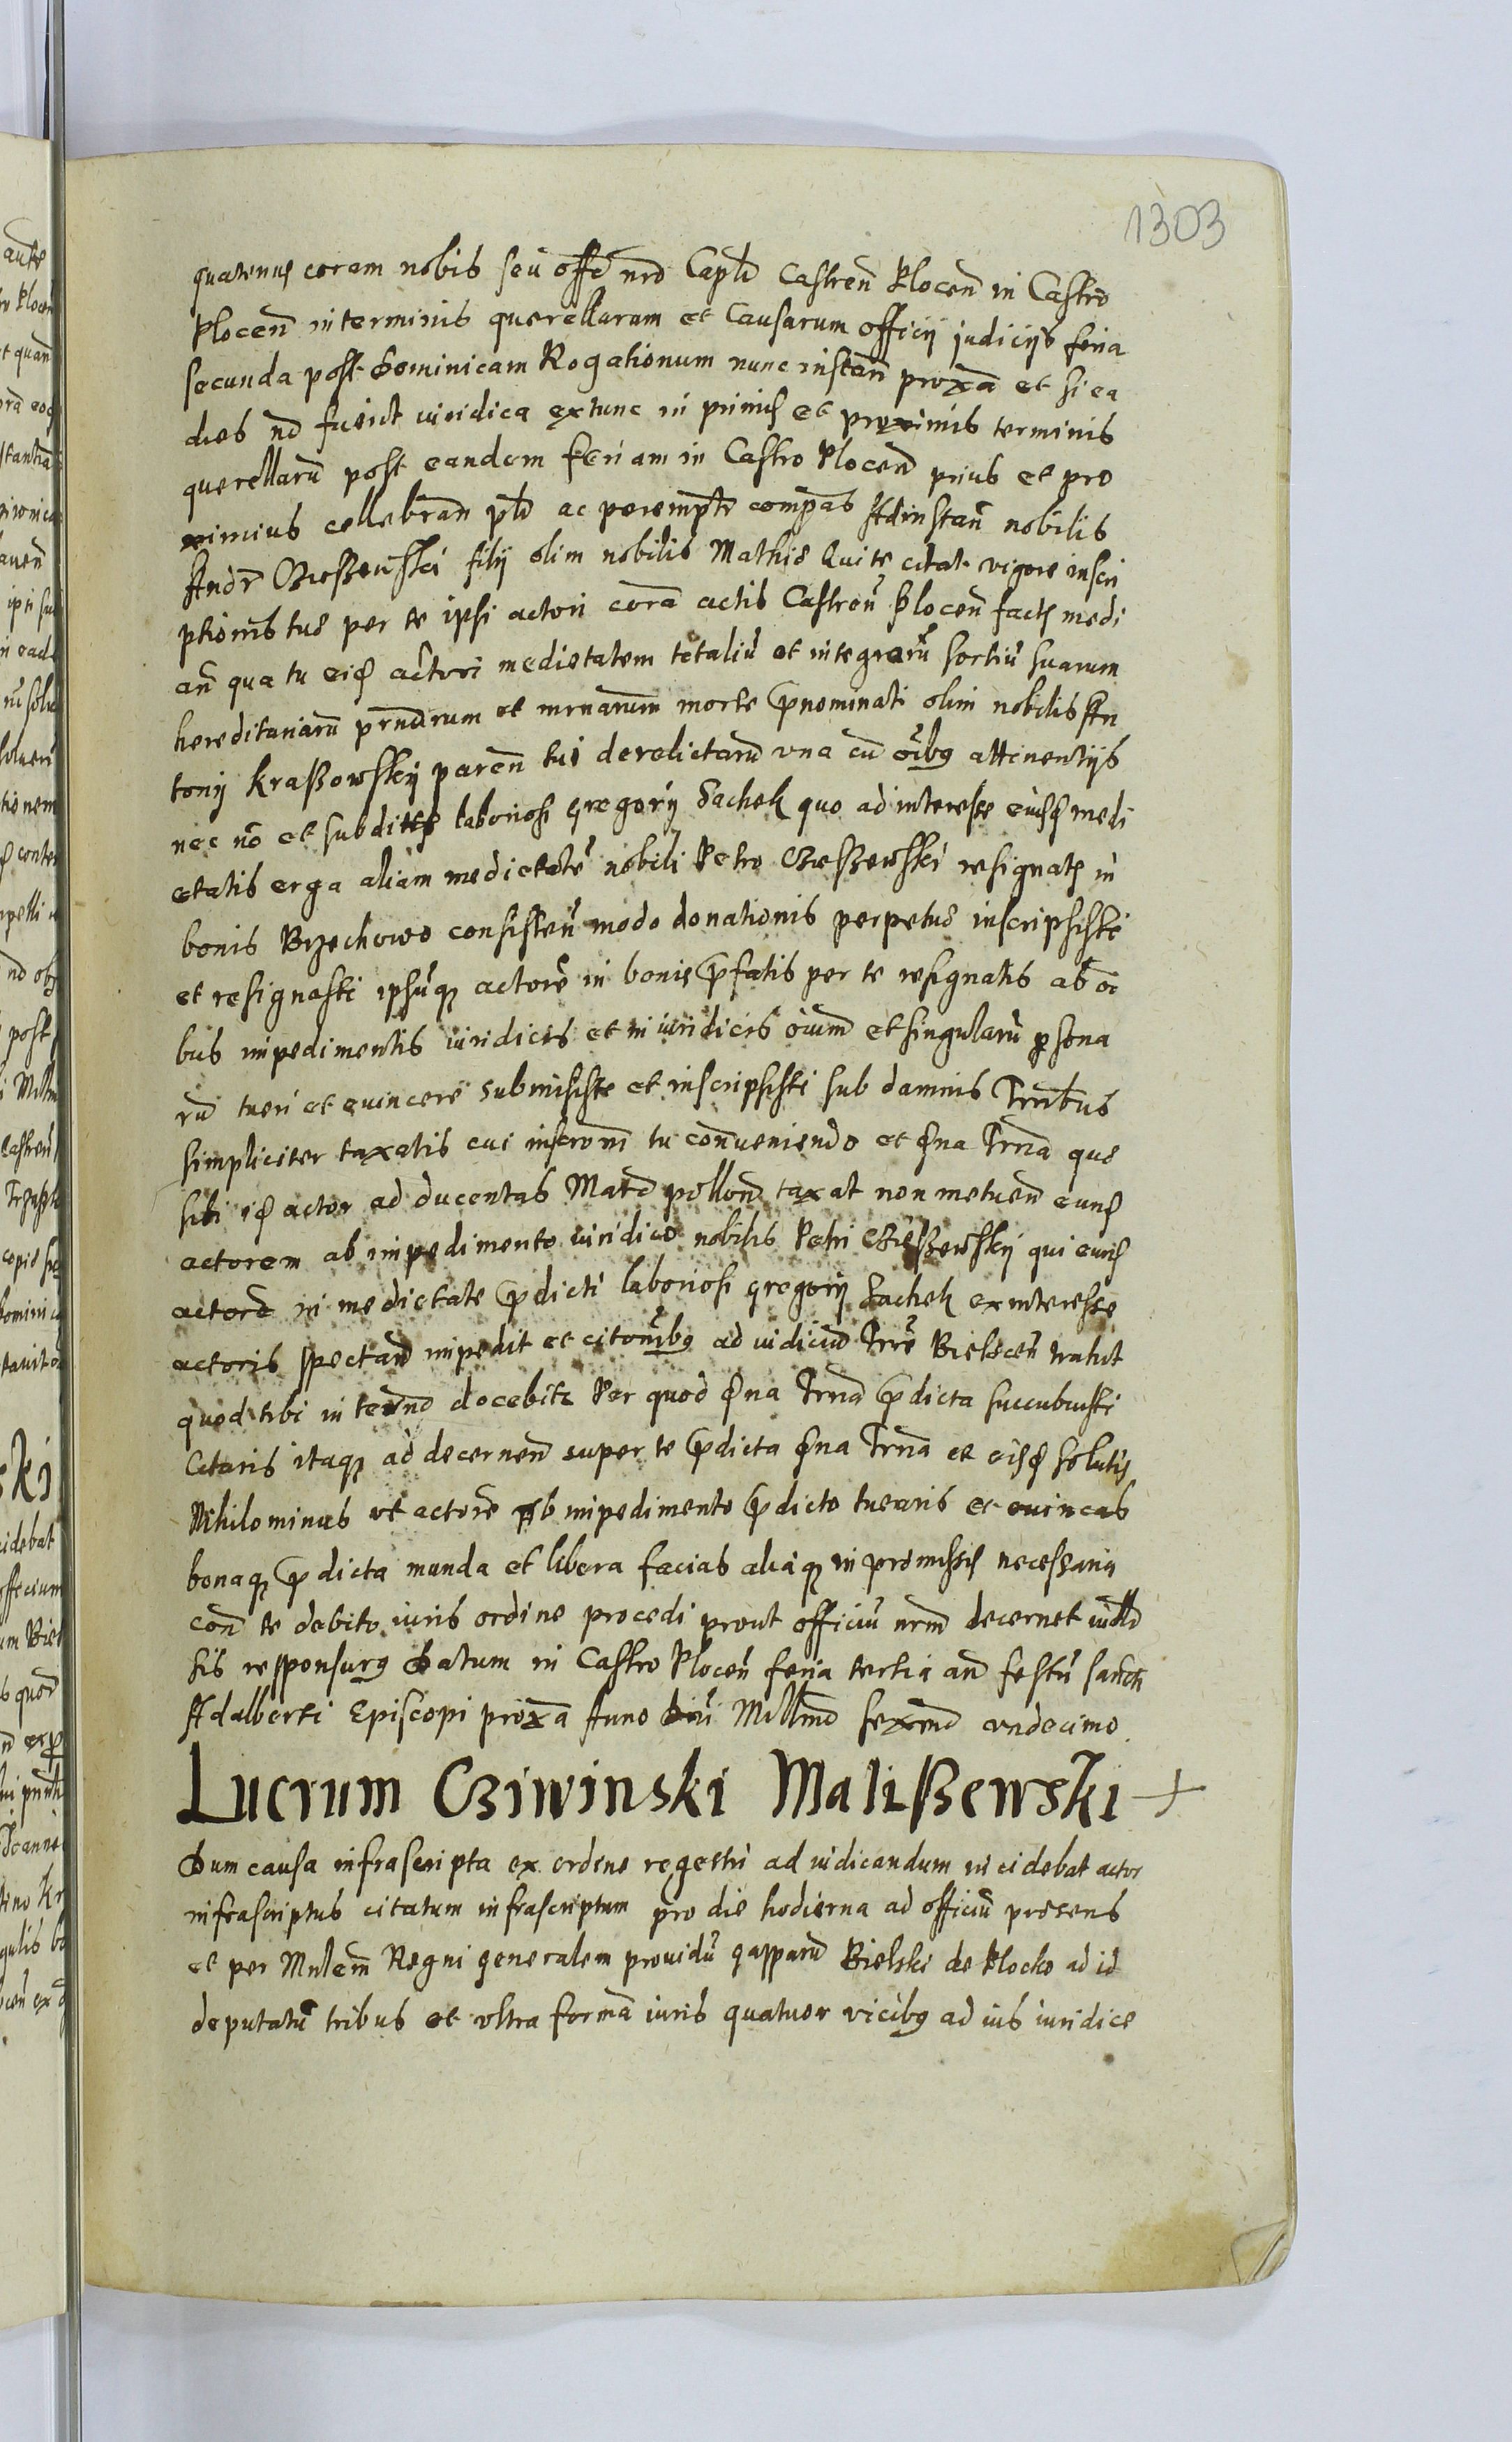 1303
quatenus coram nobis seu offo nro Capli Castren Plocen in Castro
Plocen in terminis querellarum et Causarum officij judicijs feria
secunda post Dominicam Rogationum nunc instan proxa et si ea
dies no fuerit iuridica extunc in primis et proximis terminis
querellaru post eandem feriam in Castro Plocen prius et pro
ximius cellebran plr ac peremptr compas Ad instan nobilis
Andr Czeßewski filij olim nobilis Mathie Qui te citat vigore inscri
ptionis tue per te ipsi actori cora actis Castren Plocen facte medi
an qua tu eid actori medietatem totaliu et integraru sortiu suarum
hereditariaru prnarum et mrnarum morte pnominati olim nobilis An
tonij Kraßowskij paren tui derelictaru vna cu oibus attinentijs
nec no et subditis laboriosi Gregorij Sachek quo ad interesse eiusd medi
etatis erga aliam medietate nobili Petro Czeßewski resignate in
bonis Brzechowo consisten modo donationis perpetue inscripsisti
et resignasti ipsuq actore in bonis pfatis per te resignatis ab oi
bus impedimentis iuridicis et in iuridicis oium et singularu psona
ru tueri et euincere submisiste et inscripsisti sub damnis Trribus
simpliciter taxatis cui inscroni tu conueniendo et pna Trrna que
sibi id actor ad ducentas Marc pollon taxat non metuen eund
actorem ab impedimento iuridico nobilis Petri Czießewskij qui eund
actore in medietate pdicti laboriosi Gregorij Sachek ex interesse
actoris spectan impedit et citonibus ad iudiciu Trre Bielscen trahit
quod tibi in termno docebitr Per quod pna Trrna pdicta succubuisti
Citaris itaq ad decernen super te pdicta pna Trrna et eisd solutis
Nihilominus vt actore ab impedimento pdicto tuearis et euincas
bonaq pdicta munda et libera facias aliaq in premissis necessaria
con te debito iuris ordine procedi prout officiu nrm decernet iudlr
sis responsurus Datum in Castro Plocen feria tertia an festu sancti
Adalberti Episcopi proxa Anno Dni Millmo sexcno vndecimo
Lucrum Cziwinski Malißewski +
Dum causa infrascripta ex ordine regestri ad iudicandum incidebat actor
infrascriptus citatum infrascriptum pro die hodierna ad officiu presens
et per Mnlem Regni generalem prouidu Gasparu Bielski de Plocko ad id
deputatu tribus et vltra forma iuris quatuor vicibus ad ius iuridice